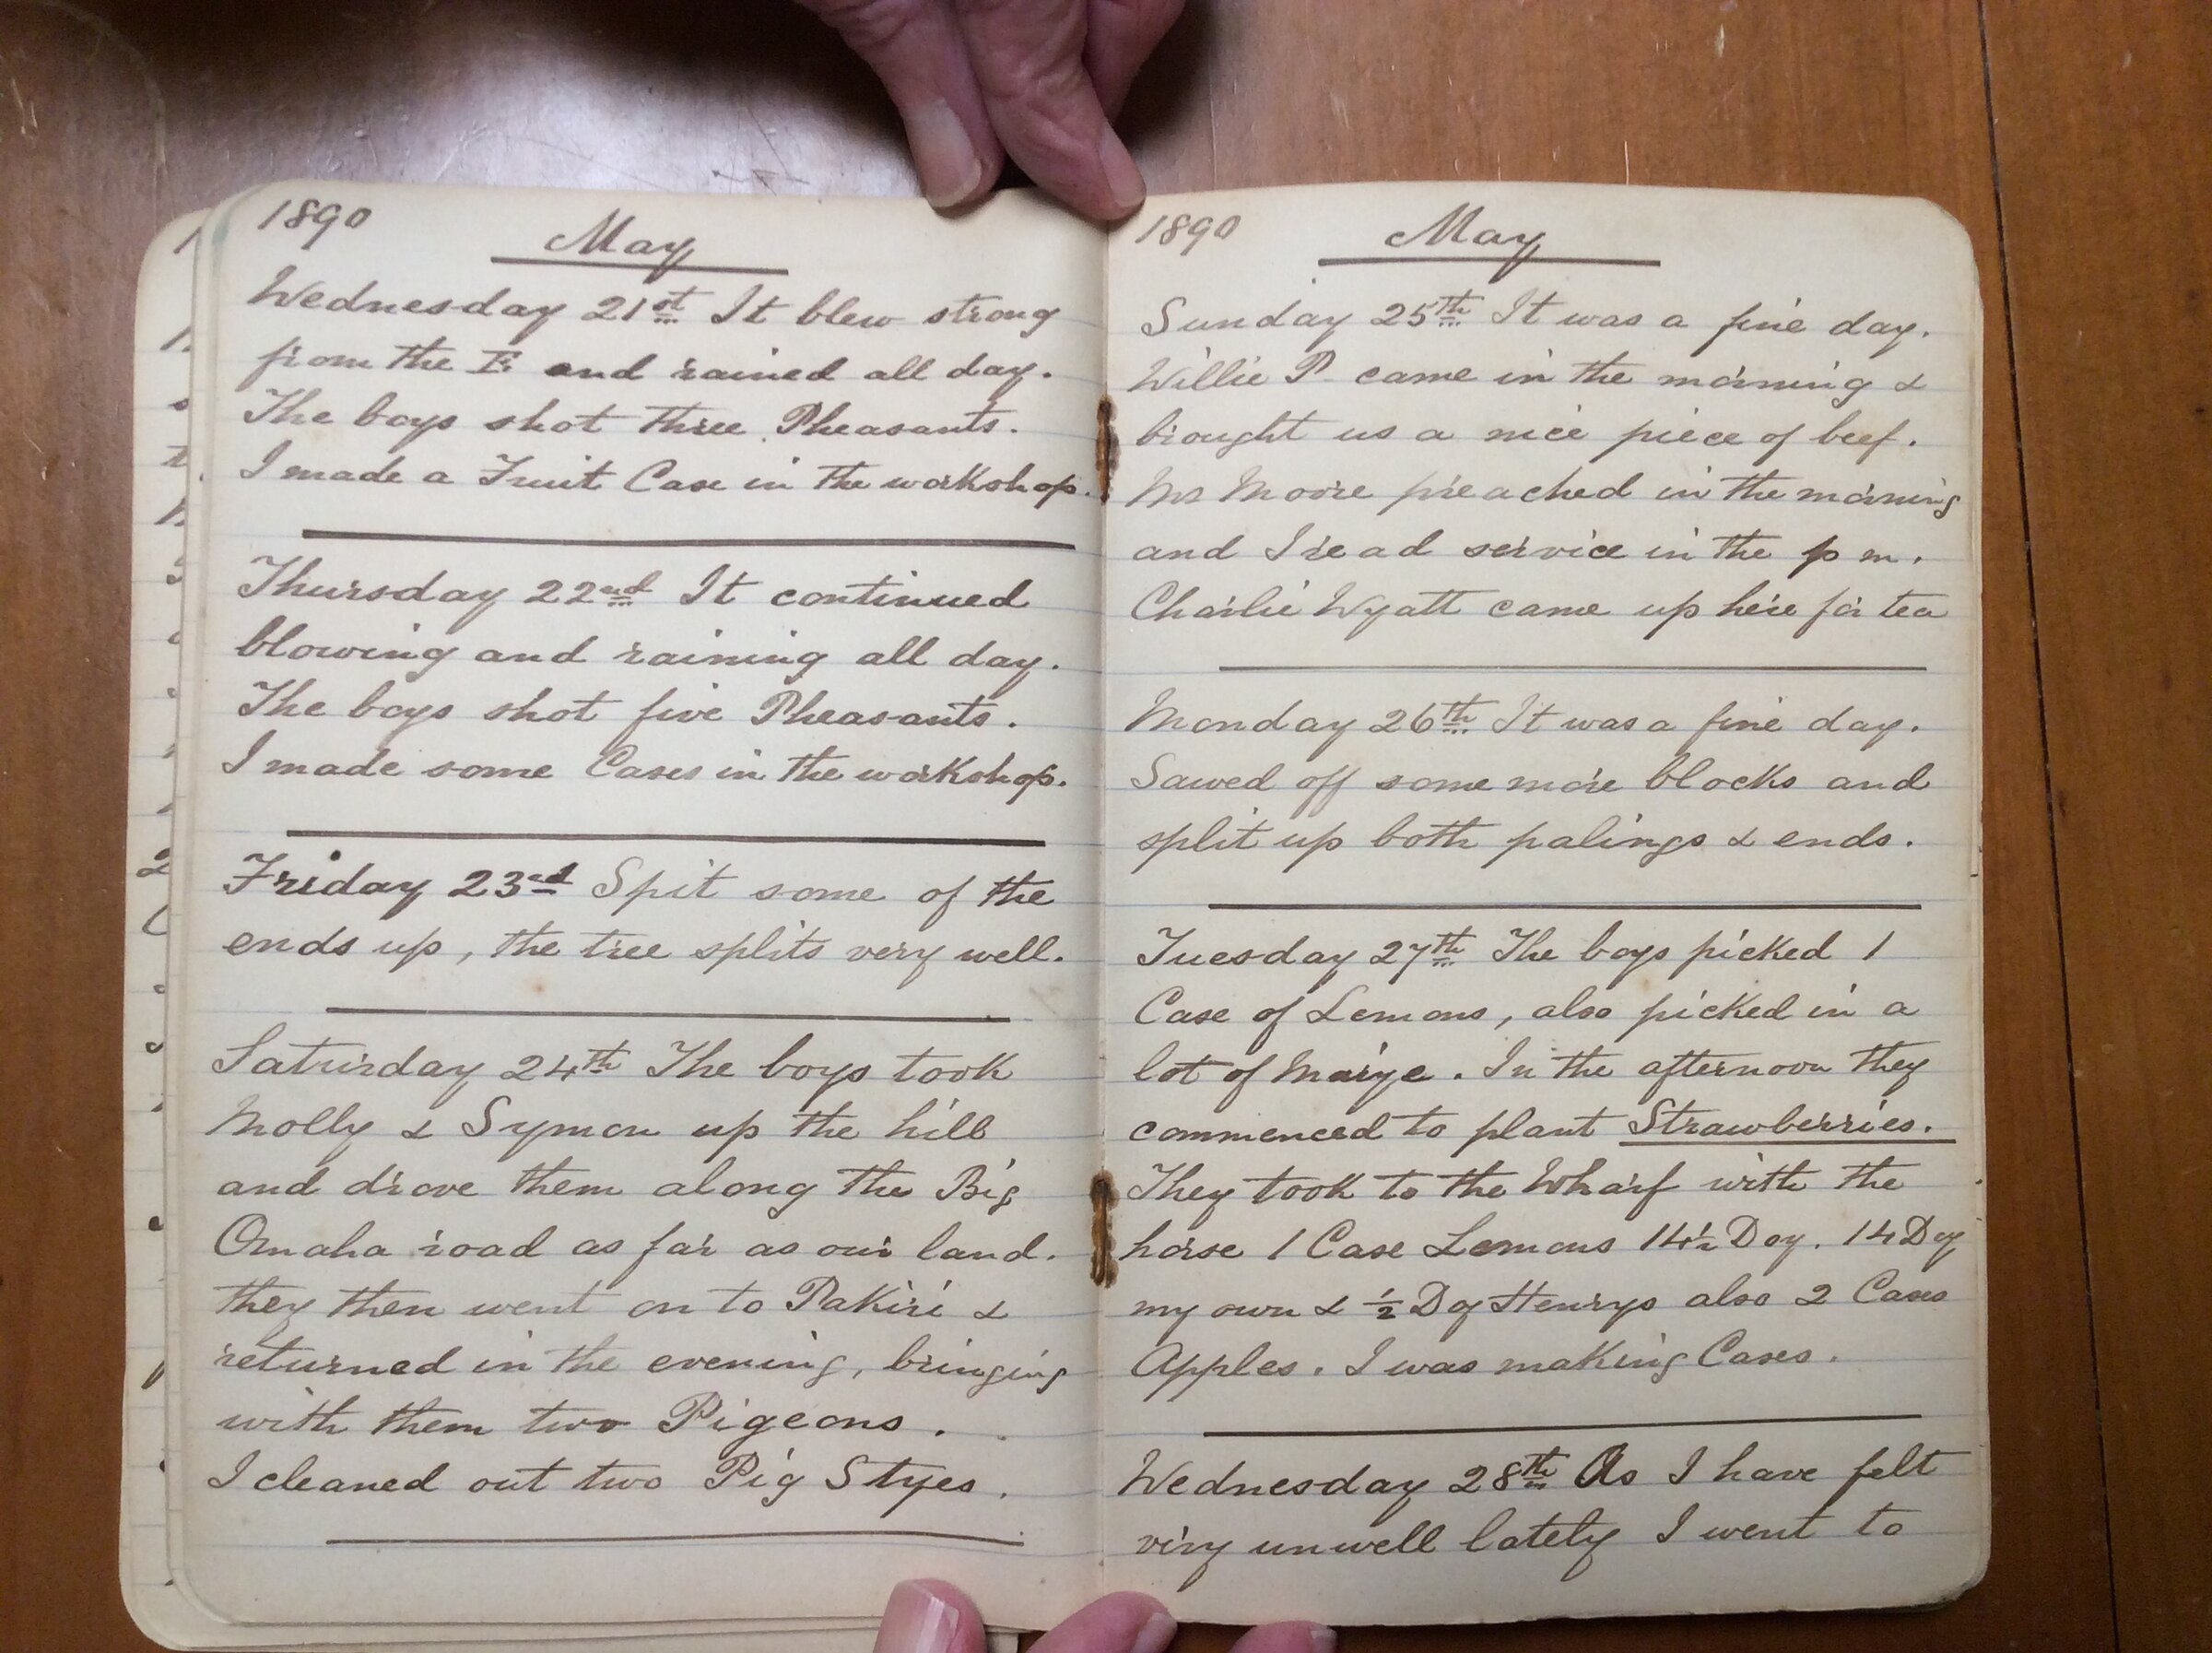 1890
May
Wednesday 21st It blew strong
from the E and rained all day.
The boys shot three Pheasants.
I made a Fruit Case in the workshop.
Thursday 22nd It continued
blowing and raining all day.
The boys shot five Pheasants.
I made some Cases in the workshop.
Friday 23rd Spit some of the
ends up, the tree splits very well.
Saturday 24th The boys took
Molly & Symon up the hill
and drove them along the Big
Omaha road as far as our land.
they then went on to Pakiri &
returned in the evening, bringing
with them two Pigeons.
I cleaned out two Pig Styes.
1890
May
Sunday 25th It was a fine day.
Willie P. came in the morning &
brought us a nice piece of beef.
Mr Moore preached in the morning
and I read service in the p m.
Charlie Wyatt came up here for tea
Monday 26th It was a fine day.
Sawed off some more blocks and
split up both palings & ends.
Tuesday 27th The boys picked 1
Case of Lemons, also picked in a
lot of Maize. In the afternoon they
commenced to plant Strawberries.
They took to the Wharf with the
horse 1 Case Lemons 14½ Doz. 14 Doz
my own & ½ Doz Henrys also 2 Cases
Apples. I was making Cases.
Wednesday 28th As I have felt
very unwell lately I went to